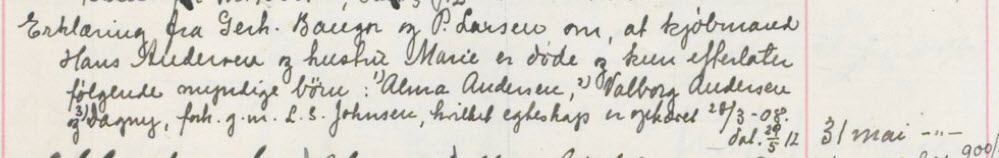 Erklæring fra Gerh. Baugn og P. Larsen om, at kjöbmand
Hans Andersen og hustru Marie er döde og kun efterlater
fölgende myndige börn: 1) Alma Andersen, 2) Valborg Andersen
og 3) Dagny, forh. g.m. L. S. Johnsen, hvilket egteskap er ophævet 28/3-08.
dat. 29/5 12 31 mai -"-
900/